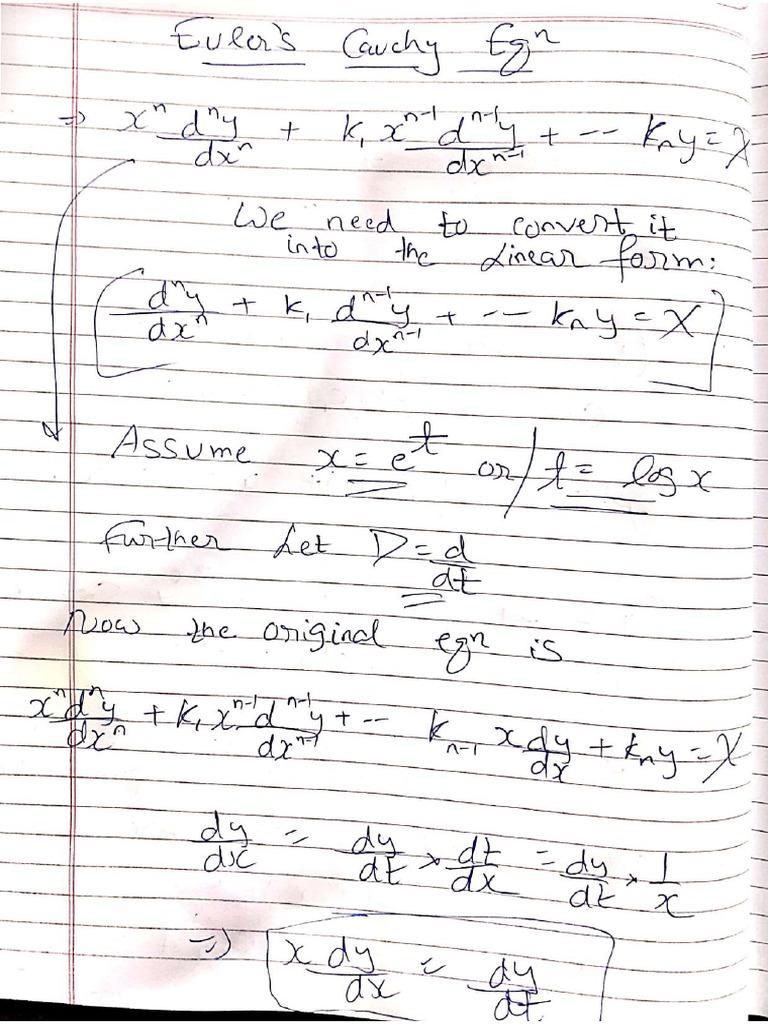 Euler's Cauchy Eqn
⇒ x^n d^n y/dx^n + k₁ x^(n-1) d^(n-1) y/dx^(n-1) + -- kₙ y = X
We need to convert it
into the Linear form:
d^n y/dx^n + k₁ d^(n-1) y/dx^(n-1) + -- kₙ y = X
Assume x = e^t or / t = log x
Further Let D = d/dt
Now the original eqn is
x^n d^n y/dx^n + k₁ x^(n-1) d^(n-1) y/dx^(n-1) + -- k_(n-1) x dy/dx + kₙ y = X
dy/dx = dy/dt × dt/dx = dy/dt × 1/x
⇒ x dy/dx = dy/dt